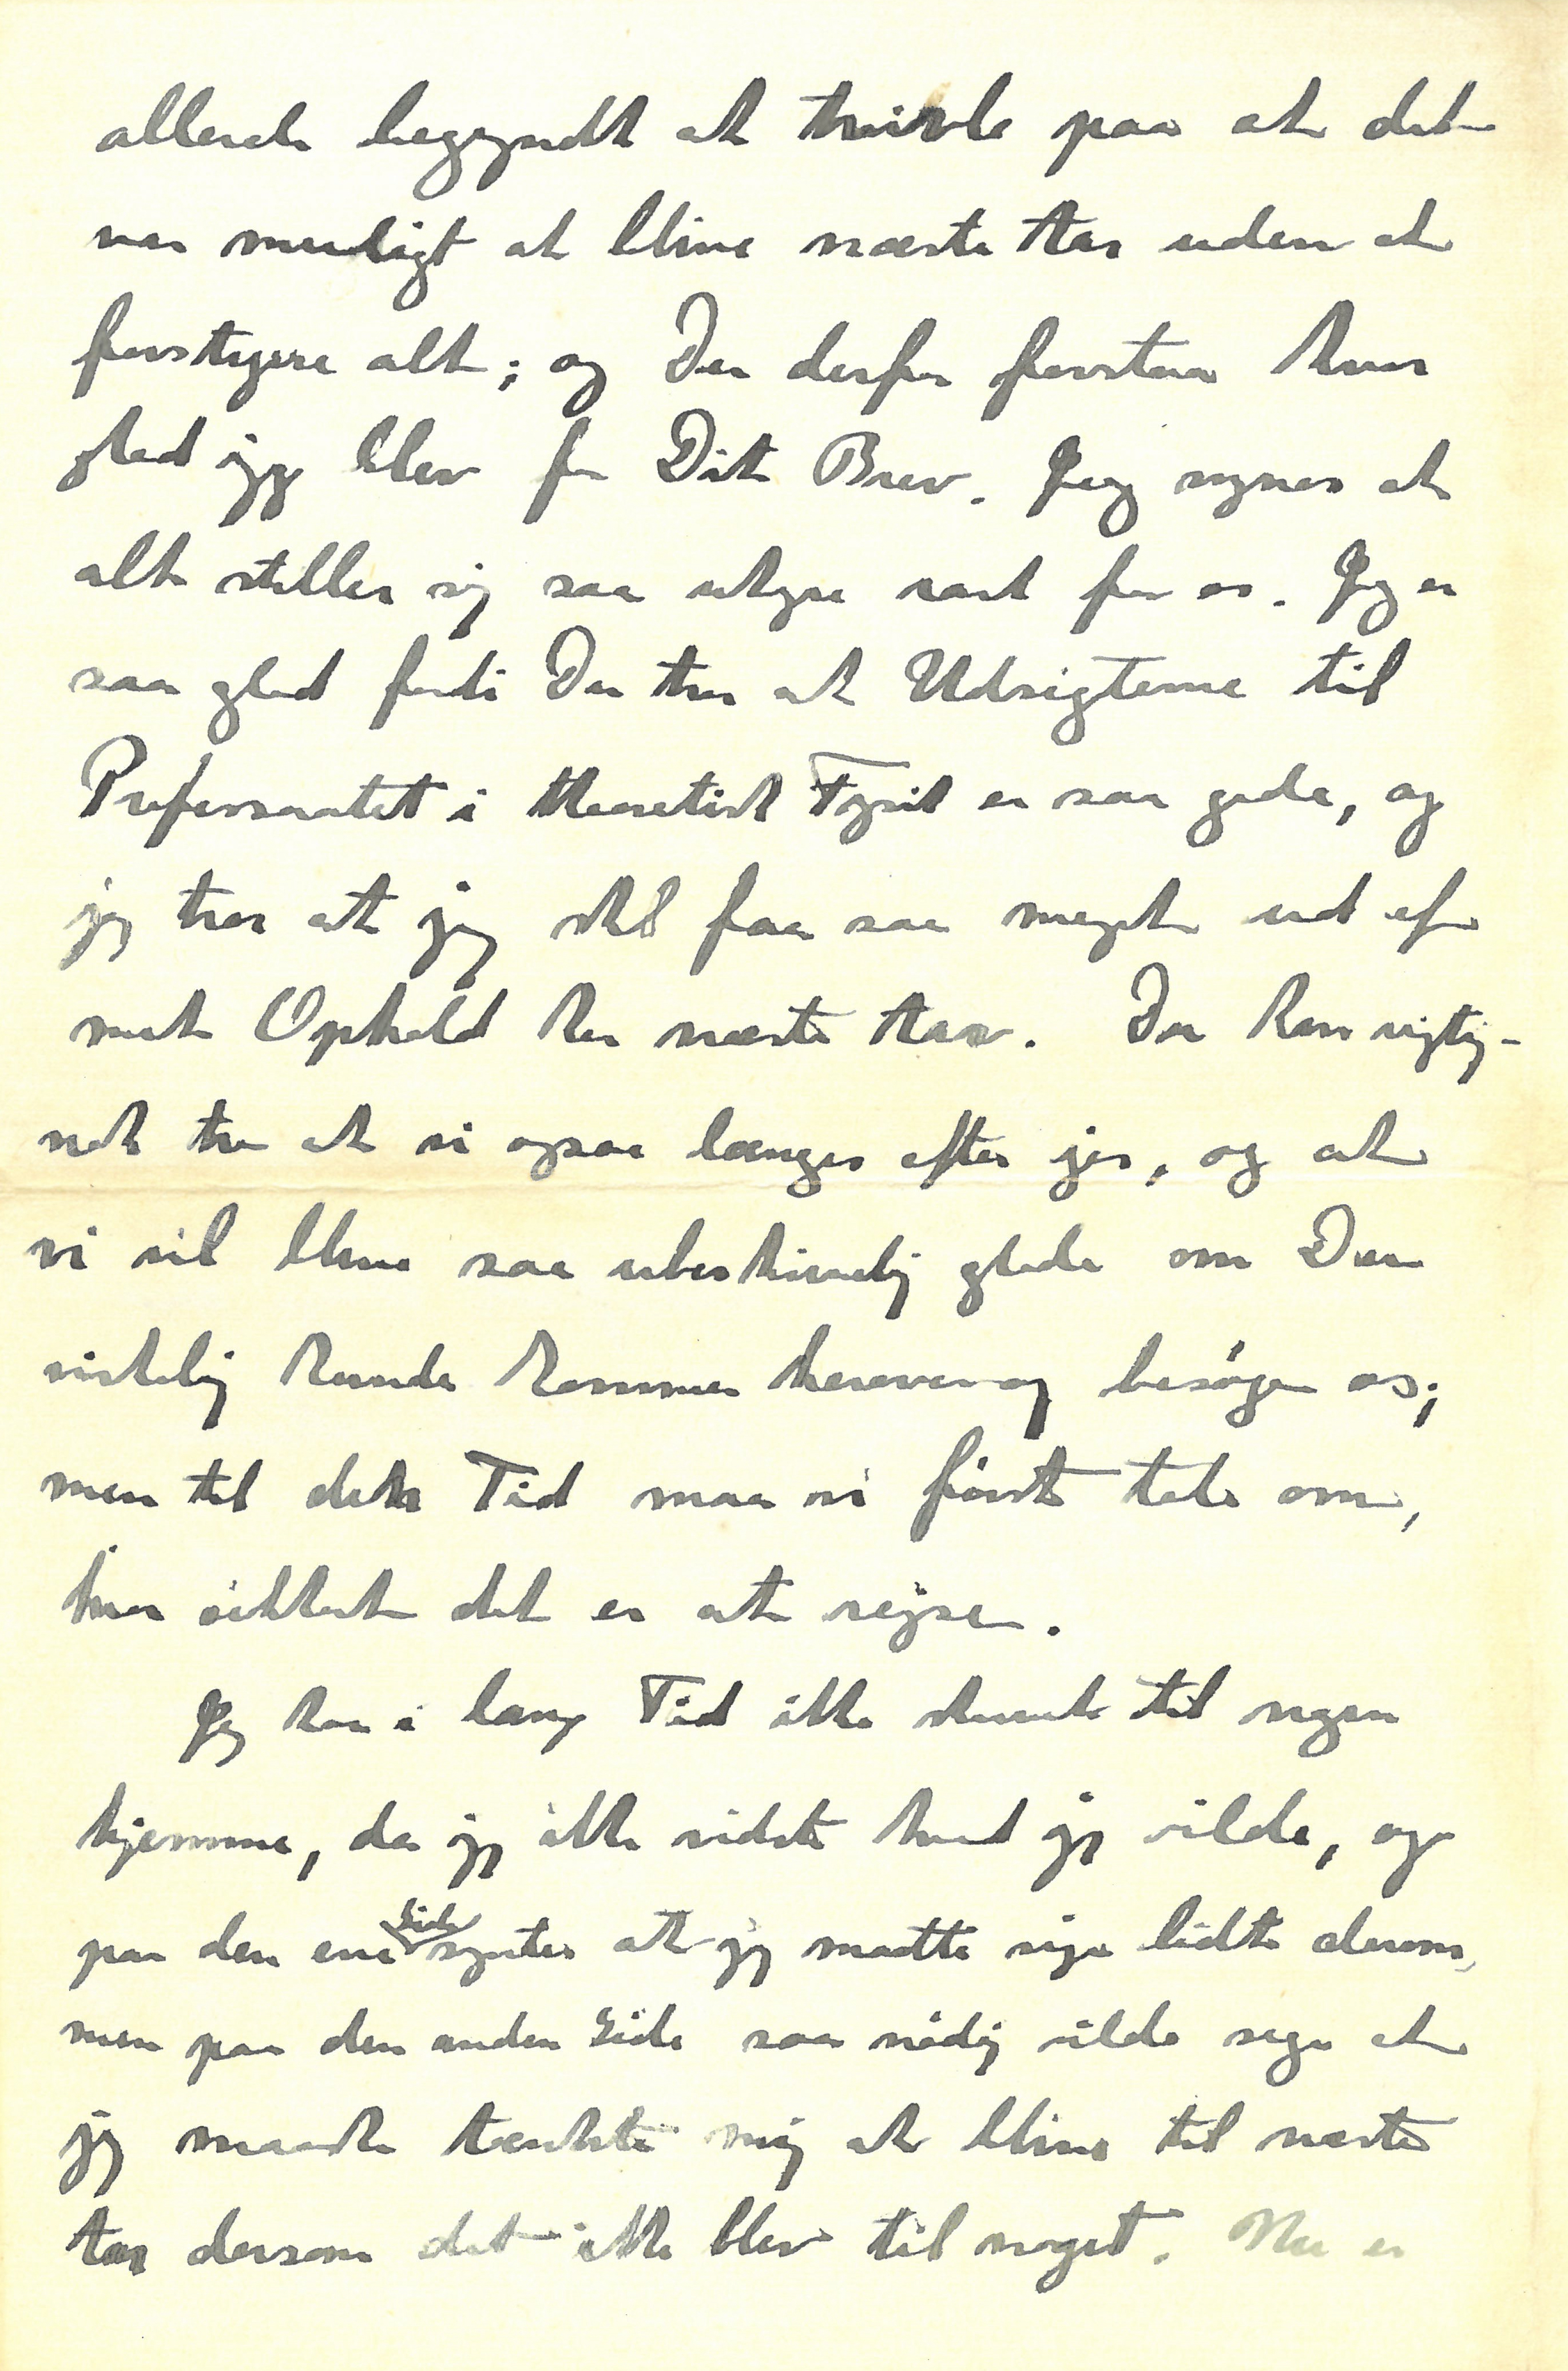 allerede begyndt at tvivle paa at det
var muligt at blive næste Aar uden at
forstyrre alt; og Du derfor forstaa hvor
glad jeg blev for Dit Brev. Jeg synes at
alt stiller sig saa uhyre rart for os. Jeg er
saa glad fordi Du tror at Udsigterne til
Professoratet i theoretisk Fysik er saa gode, og
jeg tror at jeg skal faa saa meget ud af
mit Ophold her næste Aar. Du kan rigtig-
nok tro at vi ogsaa længes efter jer, og at
vi vil blive saa ubeskrivelig glade om Du
virkelig kunde komme herover og besøge os;
men til den Tid maa vi først tale om,
hvor sikkert det er at rejse.
Jeg har i lang Tid ikke skrevet til nogen
hjemme, da jeg ikke vidste hvad jeg vilde, og
paa den ene Side syntes at jeg maatte sige lidt derom,
men paa den anden Side saa nødig vilde sige at
jeg maaske tænkte mig at blive til næste
Aar dersom det ikke blev til noget. Nu er